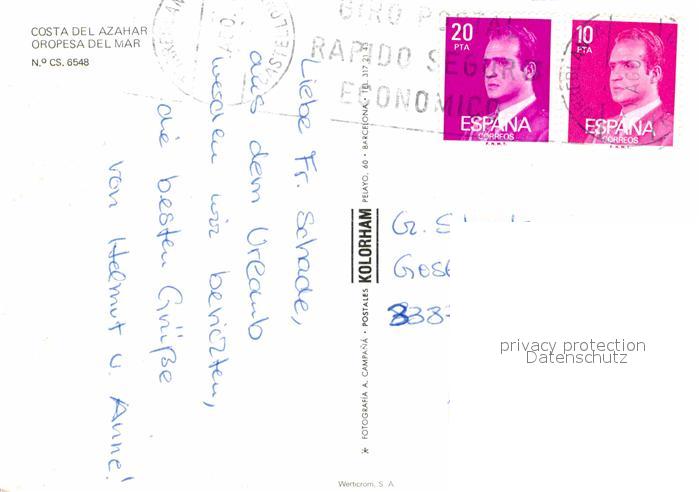 COSTA DEL AZAHAR
OROPESA DEL MAR
N.º CS. 6548
GIRO POSTAL
RAPIDO SEGURO
ECONOMICO
20
PTA
ESPAÑA
CORREOS
F.N.M.T.
10
PTA
ESPAÑA
CORREOS
F.N.M.T.
Liebe Fr. Schade,
aus dem Urlaub
wir berichten,
die besten Grüße
von Helmut u. Anne!
✶ FOTOGRAFÍA A. CAMPAÑÁ • POSTALES KOLORHAM PELAYO, 60 • BARCELONA • TEL. 317 21 43
G. S
Gos
8338
privacy protection
Datenschutz
Werticrom, S. A.